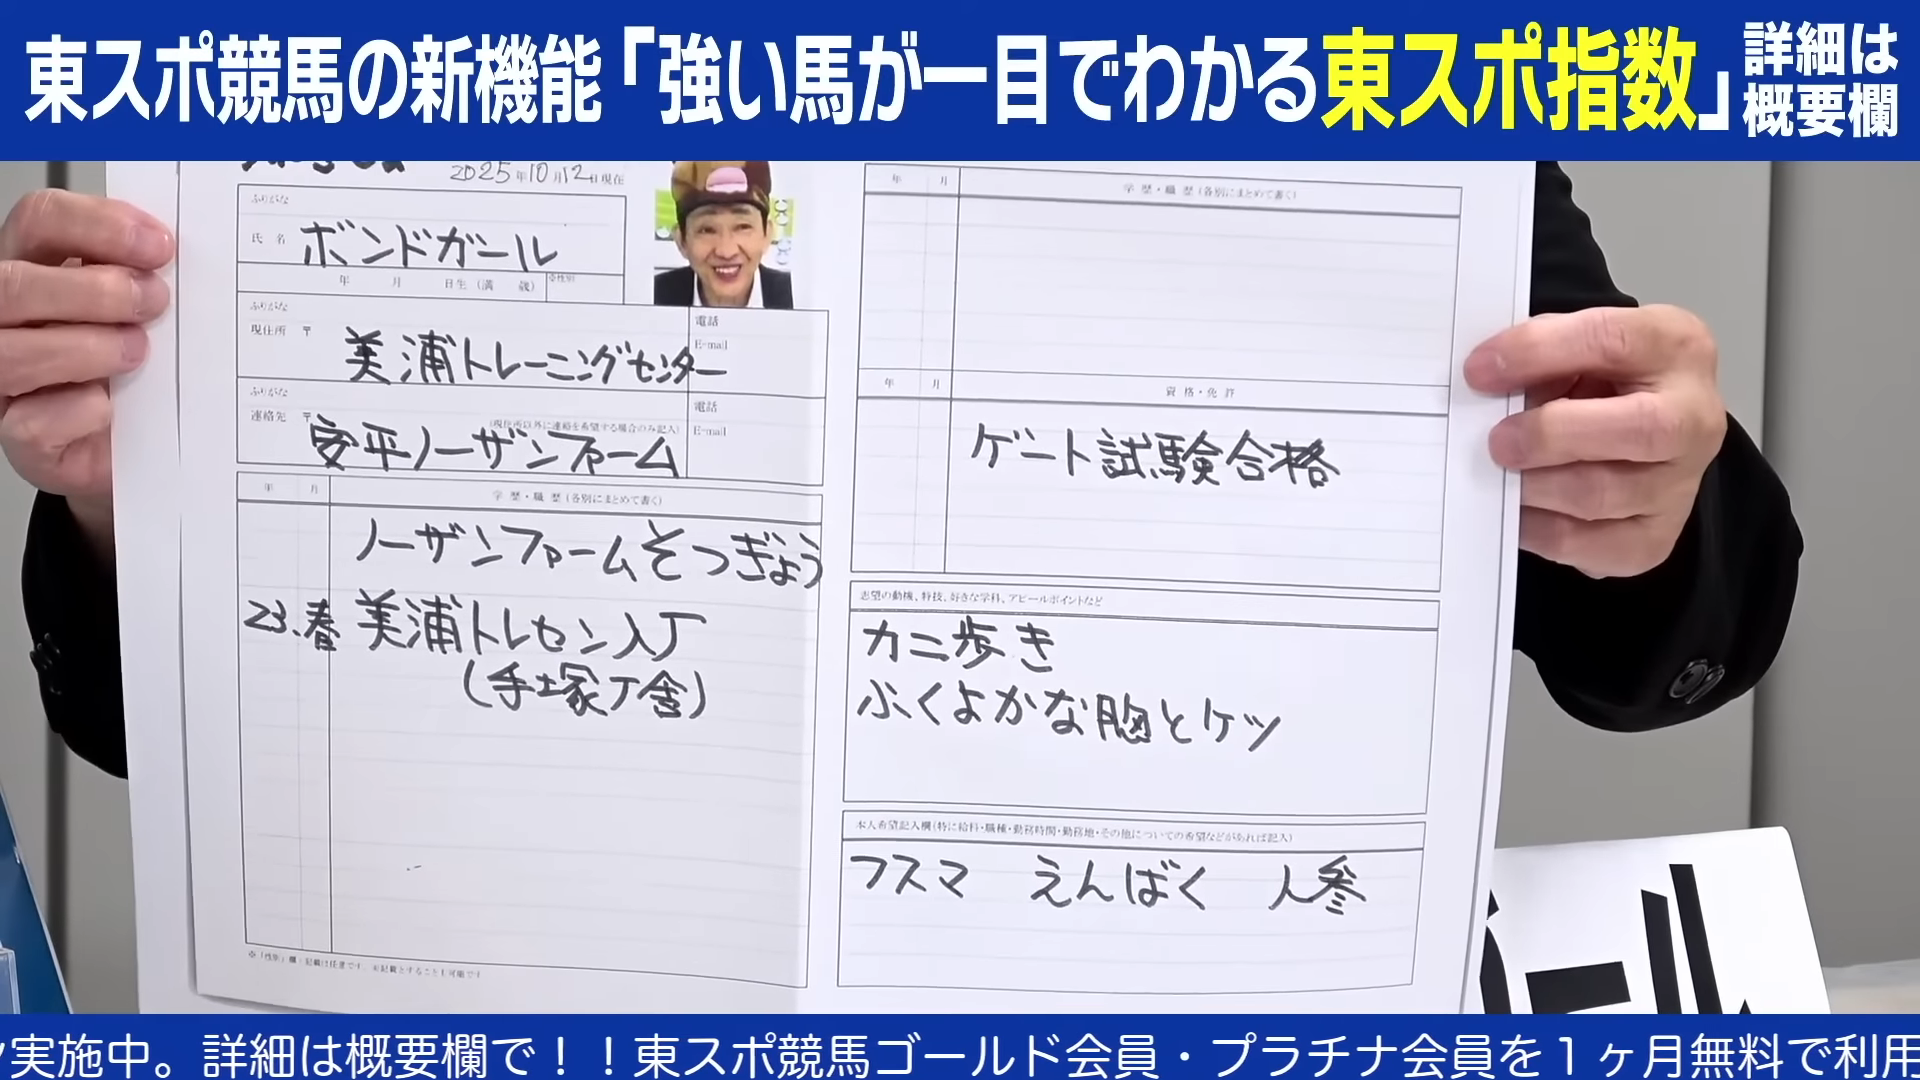 東スポ競馬の新機能「強い馬が一目でわかる東スポ指数」
詳細は
概要欄
2025年10月12日現在
ふりがな
氏 名 ボンドガール
年 月 日生(満 歳) ※性別
ふりがな
現住所 〒 美浦トレーニングセンター
電話
E-mail
ふりがな
連絡先 〒 (現住所以外に連絡を希望する場合のみ記入)
安平ノーザンファーム
電話
E-mail
年 月 学 歴・職 歴(各別にまとめて書く)
ノーザンファームそつぎょう
23.春 美浦トレセン入厂
(手塚厂舎)
※「性別」欄:記載は任意です。未記載とすることも可能です
年 月 学 歴・職 歴(各別にまとめて書く)
年 月 資 格・免 許
ゲート試験合格
志望の動機、特技、好きな学科、アピールポイントなど
カニ歩き
ふくよかな胸とケツ
本人希望記入欄(特に給料・職種・勤務時間・勤務地・その他についての希望などがあれば記入)
フスマ えんばく 人参
ール
実施中。詳細は概要欄で!!東スポ競馬ゴールド会員・プラチナ会員を1ヶ月無料で利用